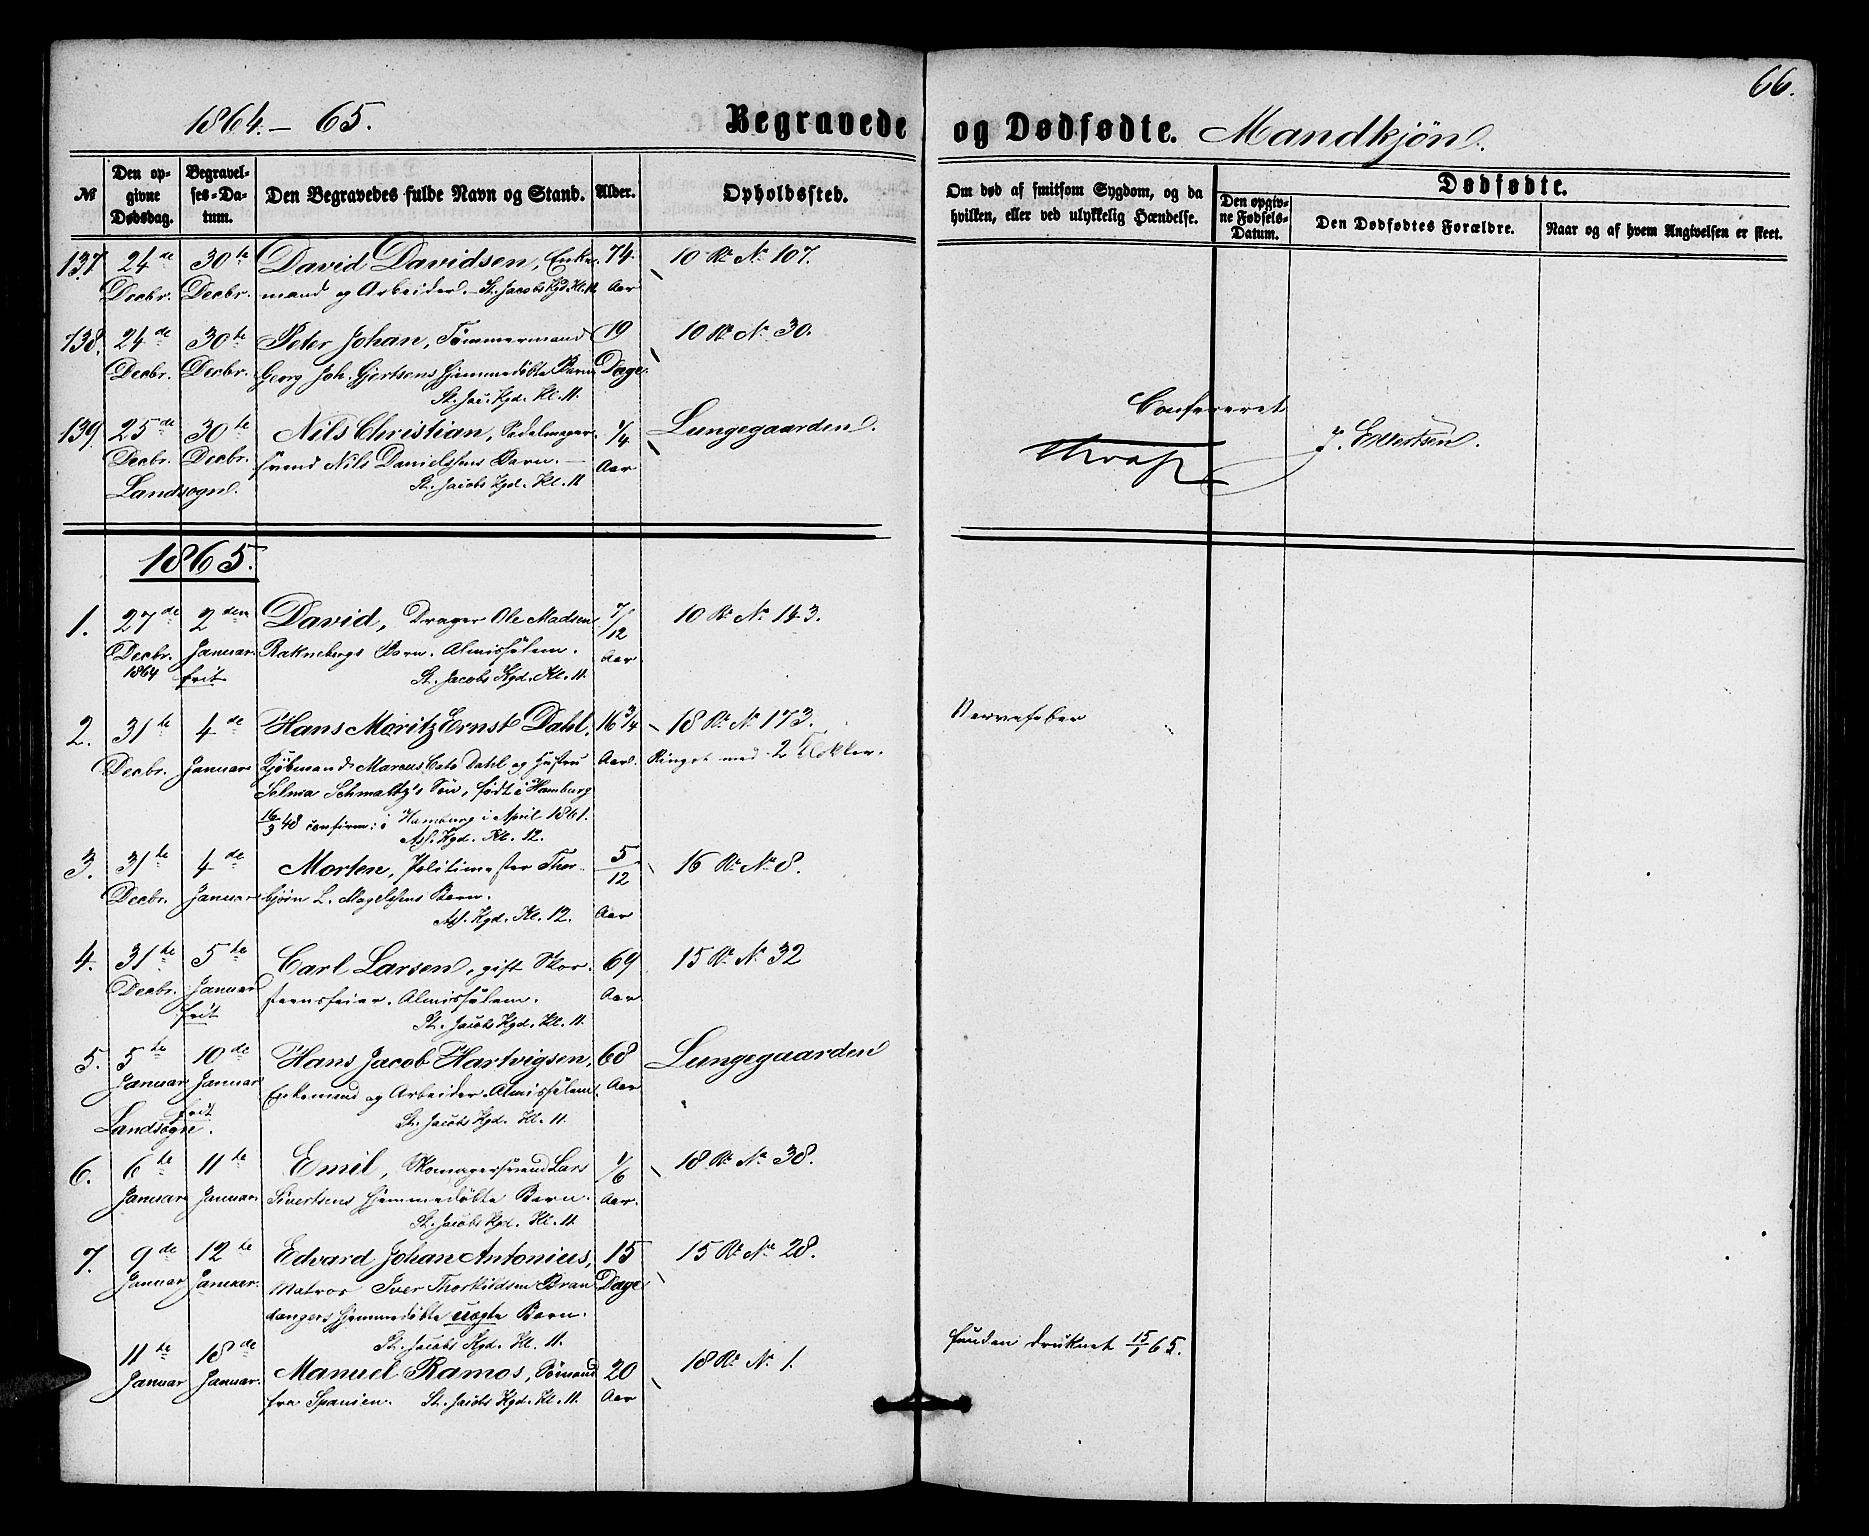 1864.- 65.
Begravede og Dødfødte. Mandkjøn.
66.
№
Den opgivne Dødsdag.
Begravelses-Datum.
Den Begravedes fulde Navn og Stand.
Alder.
Opholdssted.
Om død af smitsom Sygdom, og da hvilken, eller ved ulykkelig Hændelse.
Dødfødte.
Den opgivne Fødsels-Datum.
Den Dødfødtes Forældre.
Naar og af hvem Angivelsen er skeet.
137. 24de 30te David Davidsen, Enke- 74. 10 Rd. No 107.
Decbr. Decbr. mand og Arbeider. St. Jacobs Kgd. Kl. 11. Aar
138. 24de 30te Peter Johan, Tømmermand 19 10 Rd. No 30.
Decbr. Decbr. Georg Joh. Gjertsens hjemmedøbte Barn. Dage.
St. Jac. Kgd. Kl. 11.
139. 25de 30te Nils Christian, Sadelmager- 1/4 Lungegaarden.
Decbr. Decbr. svend Nils Danielssens Barn. Aar
Landsogn. St. Jacobs Kgd. Kl. 11
Confereret
J. Ellertsen.
1865.
1. 27de 2den David, Drager Ole Madsen 7/12 10 Rd. No 143.
Decbr. Januar. Raknebergs Barn. Almisselem. Aar
1864 frit St. Jacobs Kgd. Kl. 11.
2. 31te 4de Hans Moritz Ernst Dahl, 16 3/4 18 Rd. No 173. Nervefeber
Decbr. Januar Kjøbmand Marcus Cato Dahl og Hustru Aar. Ringet med 2 Klokker.
Selma Schmaltz's Søn, født i Hamburg
16/3 48 confirm: i Hamburg i April 1861.
Ass. Kgd. Kl. 12.
3. 31te 4de Morten, Politimester Thor- 5/12 16 Rd. No 8.
Decbr. Januar bjørn L. Magelssens Barn. Aar
Ass. Kgd. Kl. 12.
4. 31te 5te Carl Larsen, gift Skor- 69 15 Rd. No 32
Decbr. Januar steensfeier. Almisselem. Aar
frit St. Jacobs Kgd. Kl. 11.
5. 5te 10de Hans Jacob Hartvigsen, 68 Lungegaarden
Januar Januar Enkemand og Arbeider. Almisselem. Aar
frit
Landsogn. St. Jacobs Kgd. Kl. 11.
6. 6te 11te Emil, Skomagersvend Lars 1/6 18 Rd. No 38.
Januar Januar. Sivertsens hjemmedøbte Barn. Aar.
St. Jacobs Kgd. Kl. 11.
7. 9de 12te Edvard Johan Antonius, 15 15 Rd. No 28.
Januar Januar. Matros Iver Thorkildsen Bran Dage
dangers hjemmedøbte uægte Barn.
St. Jacobs Kgd. Kl. 11.
11te 18de Manuel Ramos, Sømand 20 18 Rd. No 1. funden druknet 15/1 65.
Januar Januar. fra Spanien. St. Jacobs Kgd. Kl. 11. Aar